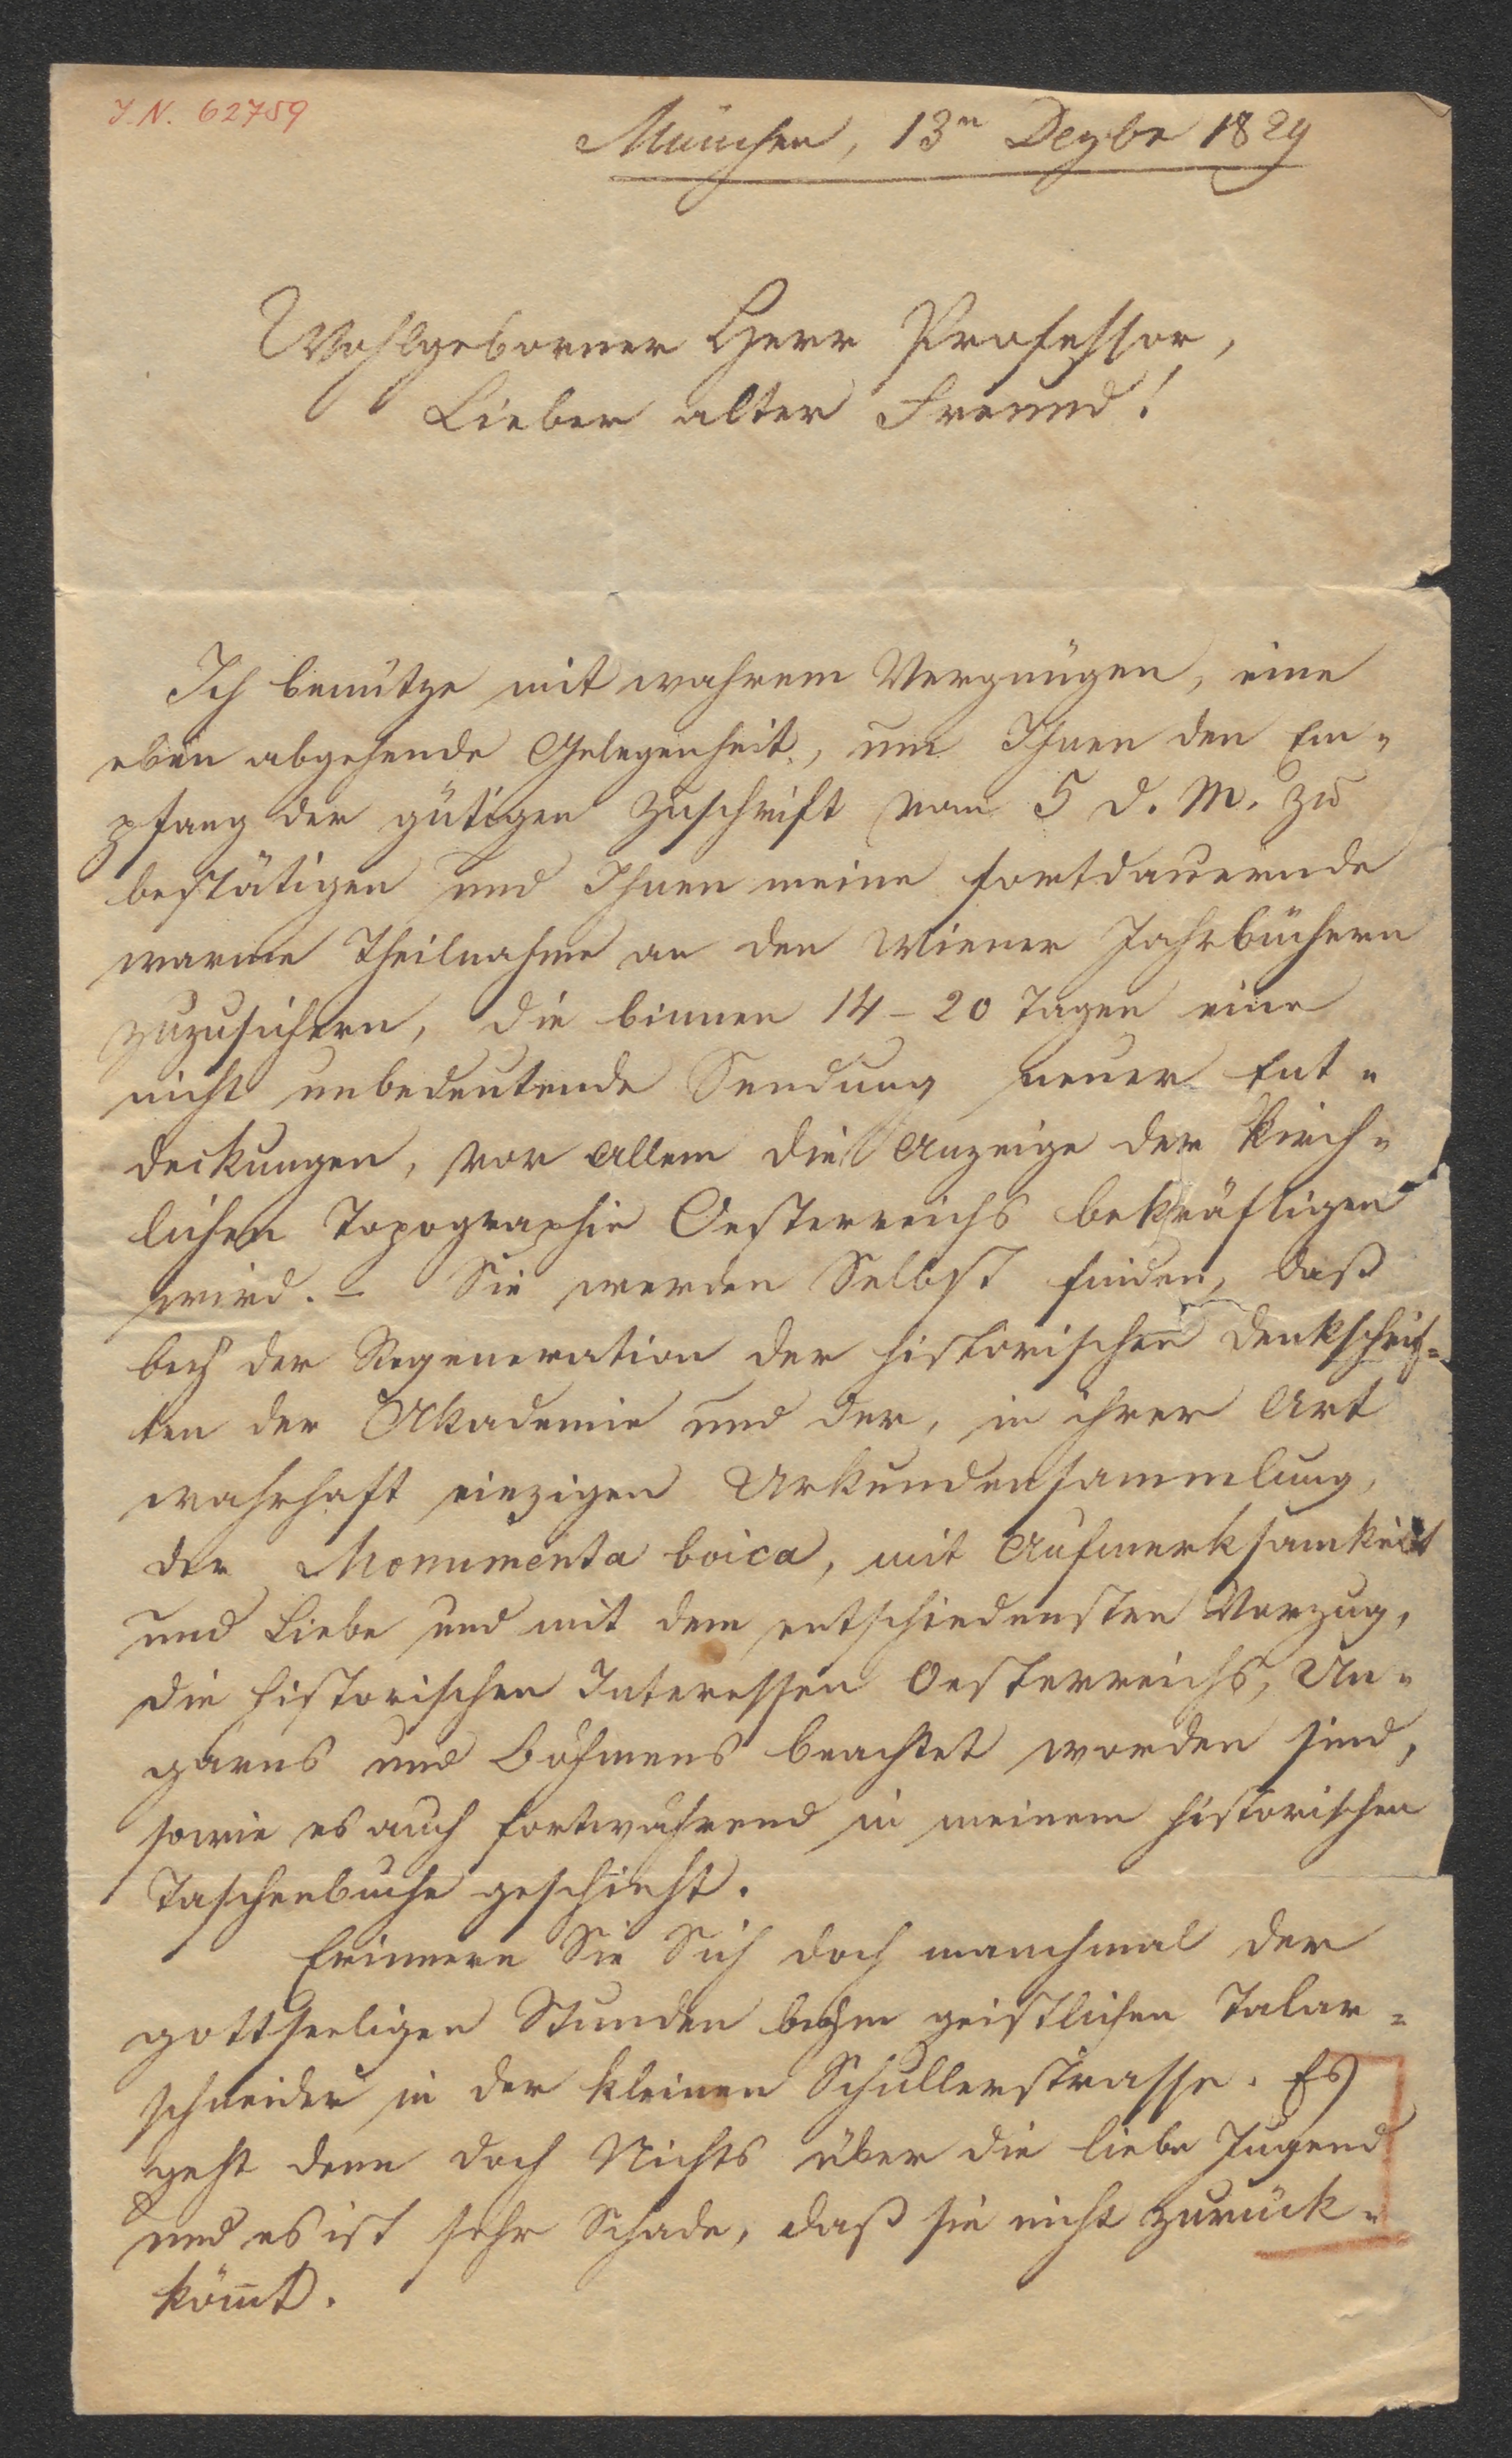 J. N. 62759
München, 13n Dezbr 1829
Wohlgeborner Herr Professor,
Lieber alter Freund!
Ich benütze mit wahrem Vergnügen, eine
eben abgehende Gelegenheit, um Ihnen den Em=
pfang der gütigen Zuschrift vom 5 d. M. zu
bestätigen und Ihnen meine fortdauernde
warme Theilnahme an den Wiener Jahrbüchern
zuzusichern, die binnen 14 – 20 Tagen eine
nicht unbedeutende Sendung neuer Ent=
deckungen, vor Allem die Anzeige der Kirch=
lichen Topographie Oesterreichs bekräftigen
wird. – Sie werden Selbst finden, daß
bey der Regeneration der historischen Denkschrif=
ten der Akademie und der, in ihrer Art
wahrhaft einzigen Urkundensammlung,
der Monumenta boica, mit Aufmerksamkeit
und Liebe und mit dem entschiedensten Vorzug,
die historischen Interessen Oesterreichs, Un=
garns und Böhmens beachtet worden sind,
sowie es auch fortwährend in meinem historischen
Taschenbuche geschieht.
Erinnern Sie Sich doch manchmal der
gottseeligen Stunden beym geistlichen Talar=
schneider in der kleinen Schullerstrasse. Es
geht denn doch Nichts über die liebe Jugend
und es ist sehr Schade, daß sie nicht zurück=
köm̄t.